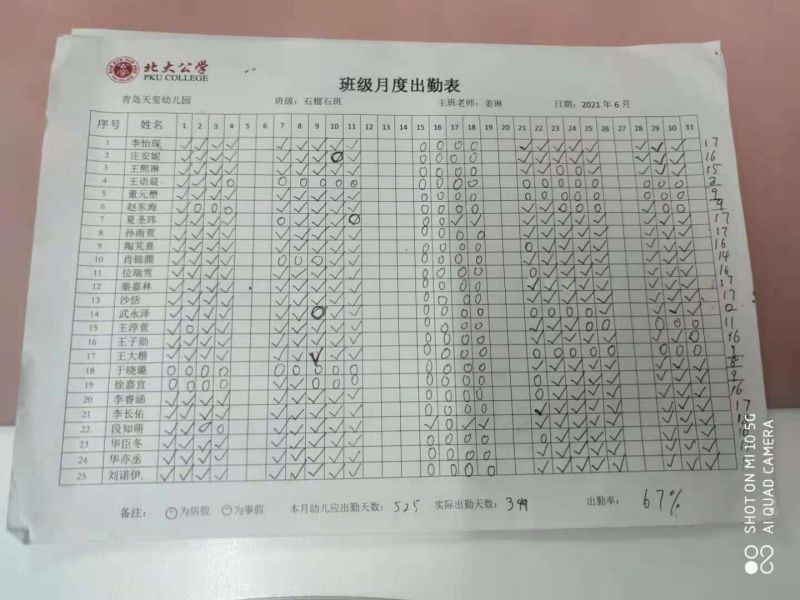 北大公学
PKU COLLEGE
班级月度出勤表
青岛天玺幼儿园 班级：石榴石班 主班老师：姜琳 日期：2021 年 6 月
序号 姓名 1 2 3 4 5 6 7 8 9 10 11 12 13 14 15 16 17 18 19 20 21 22 23 24 25 26 27 28 29 30 31
1 李怡琛 17
2 庄安妮 16
3 王熙琳 15
4 王语晨 2
5 董元懋 9
6 赵东海 9
7 夏圣玮 17
8 孙雨萱 17
9 陶芃熹 16
10 肖锦澜 14
11 位瑞雪 16
12 秦嘉林 17
13 沙恬 17
14 武永泽
15 王淳萱 11
16 王子勋 16
17 王大楷 9
18 于晓璐
19 徐嘉宜 9
20 李睿涵 16
21 李长佑 17
22 段知萌
23 华臣冬
24 华亦丞
25 刘诺伊
备注： 为病假 为事假 本月幼儿应出勤天数：525 实际出勤天数：349 出勤率：67%
SHOT ON MI 10 5G
AI QUAD CAMERA